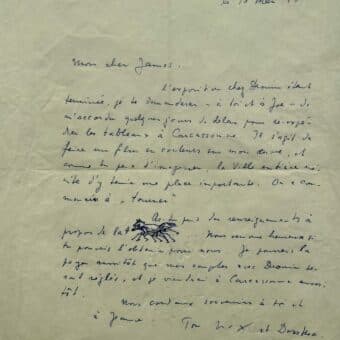 Mon cher James.
L'exposition chez Drouin étant
terminée, je te demanderai – à toi et à Joe – de
m'accorder quelques jours de délai pour ré-expé-
dier les tableaux à Carcassonne. Il s'agit de
faire un film en couleurs sur mon œuvre, et
comme tu peux t'imaginer, la Ville entière mé-
rite d'y tenir une place importante. On a com-
mencé à "tourner"
As-tu pu des renseignements à
propos de
Nous serions heureux si
tu pouvais l'obtenir pour nous. Je pourrais la
payer aussitôt que mes comptes avec Drouin se-
ront réglés, et je viendrai à Carcassonne aussi-
tôt.
Nous cordiaux souvenirs à toi et
à Jeanne. Ton et